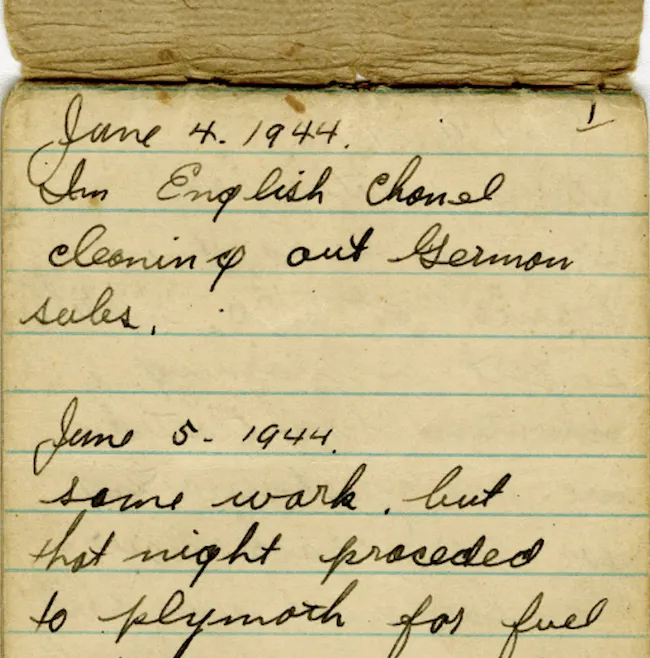 1
June 4. 1944.
In English Chanel
cleaning out German
subs.
June 5 - 1944.
same work. but
that night proceded
to plymoth for fuel